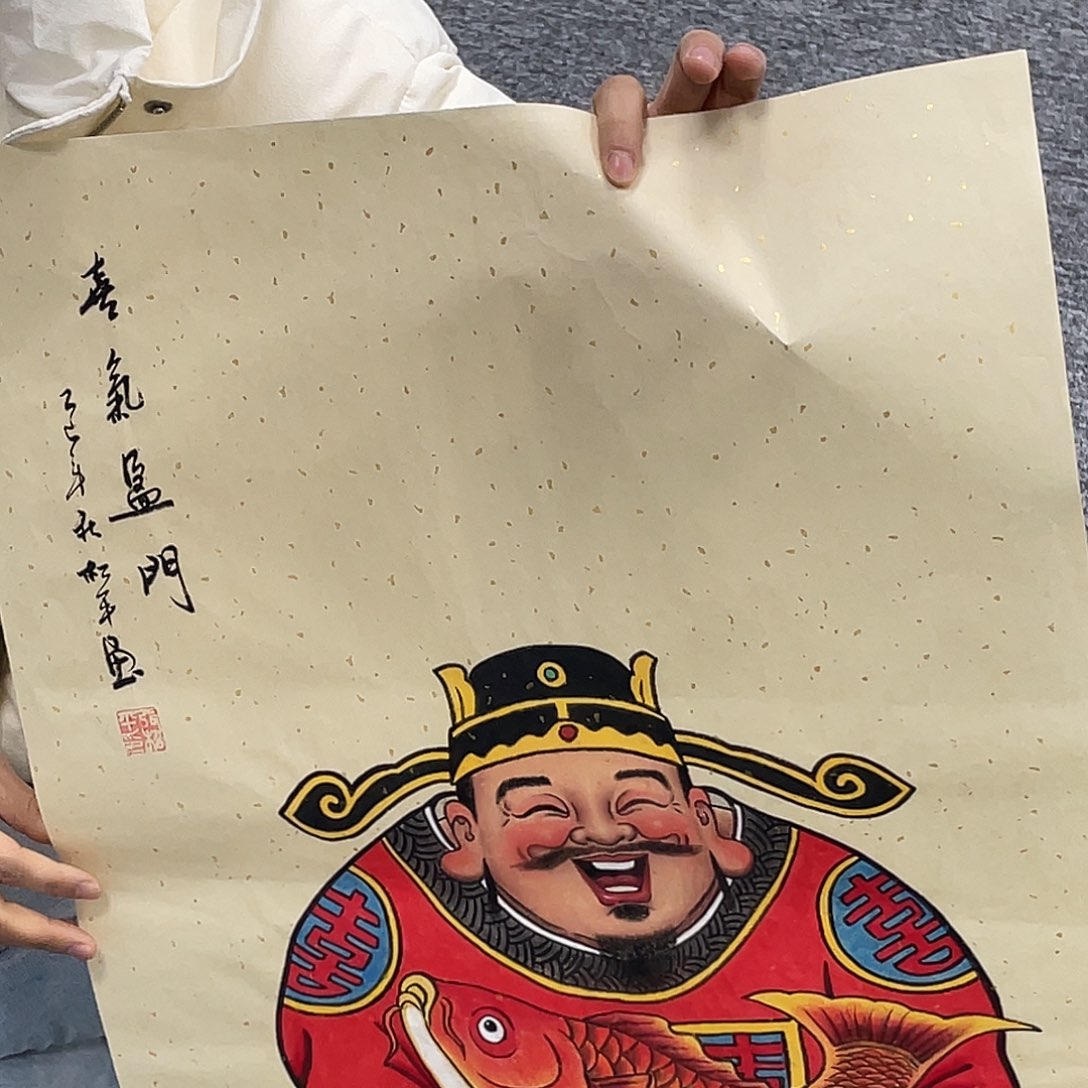 喜氣盈門
乙巳年秋松平画